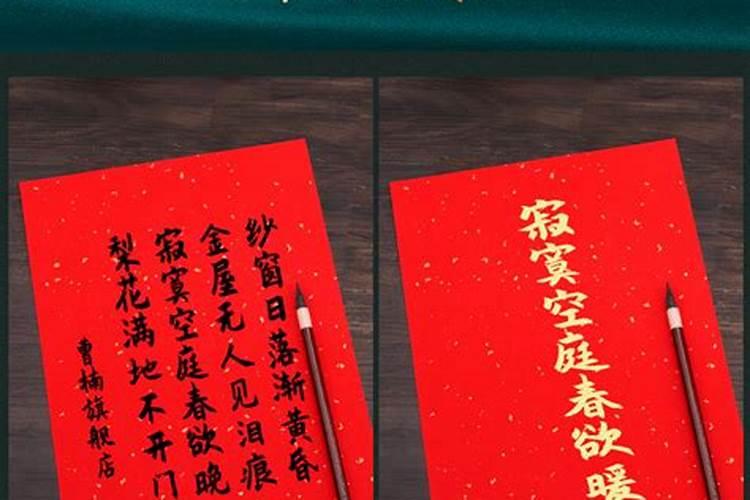 纱窗日落渐黄昏
金屋无人见泪痕
寂寞空庭春欲晚
梨花满地不开门
曹楠旗舰店
寂寞空庭春欲暖